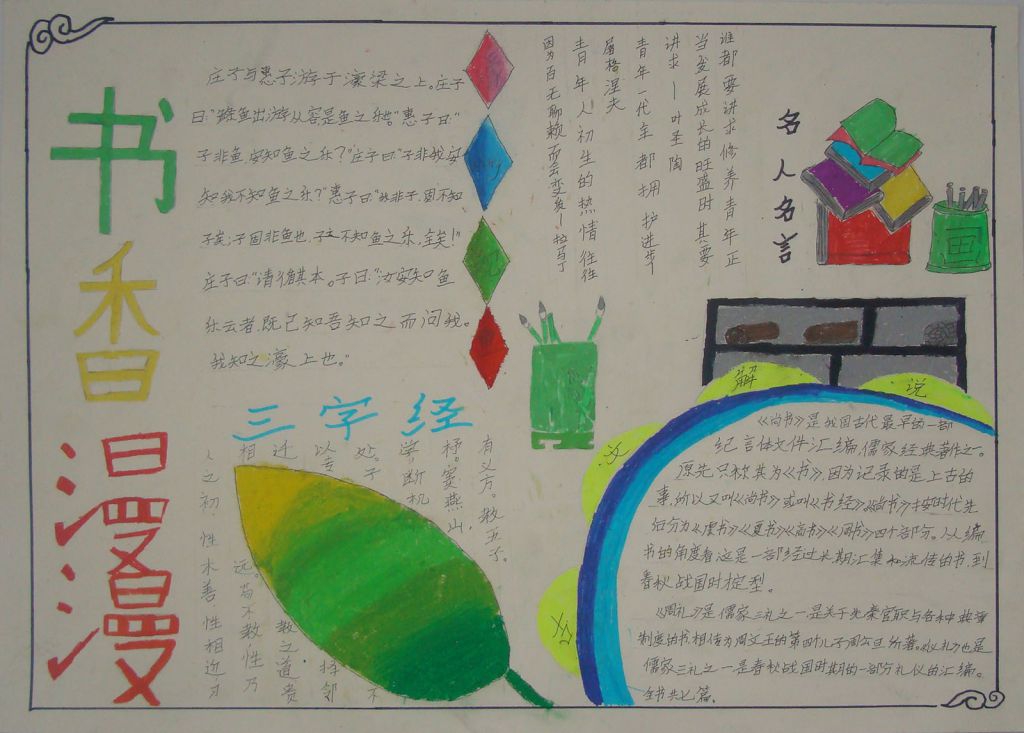 书香漫漫
庄子与惠子游于濠梁之上。庄子
曰:"鲦鱼出游从容,是鱼之乐也。"惠子曰:"
子非鱼,安知鱼之乐?"庄子曰:"子非我,安
知我不知鱼之乐?"惠子曰:"我非子,固不知
子矣;子固非鱼也,子之不知鱼之乐,全矣!"
庄子曰:"请循其本。子曰:"汝安知鱼
乐云者,既已知吾知之而问我。
我知之濠上也。"
名人名言
谁都要讲求修养青年正
当发展成长的旺盛时其要
讲求—叶圣陶
青年一代至都拥护进步
屠格涅夫
青年人初生的热情往往
因为百无聊赖而会变
三字经
有义方。教五子。
杼。窦燕山,
学断机
处。子
以专
迁
相
人之初,性本善,性相近,习
远。苟不教,性乃
教之道,贵
择邻
不
文
言
解
说
《尚书》是我国古代最早的一部
纪言体文件汇编,儒家经典著作之一。
原先只称其为《书》,因为记录的是上古的
事,所以又叫《尚书》或叫《书经》。《尚书》按时代先
后分为《虞书》《夏书》《商书》《周书》四个部分。从编
书的角度看这是一部经过长期汇集和流传的书,到
春秋战国时定型。
《周礼》是儒家三礼之一是关于先秦官职与各种典章
制度的书,相传为周文王的第四儿子周公旦所著。《仪礼》也是
儒家三礼之一是春秋战国时期的一部分礼仪的汇编。
全书共七篇.